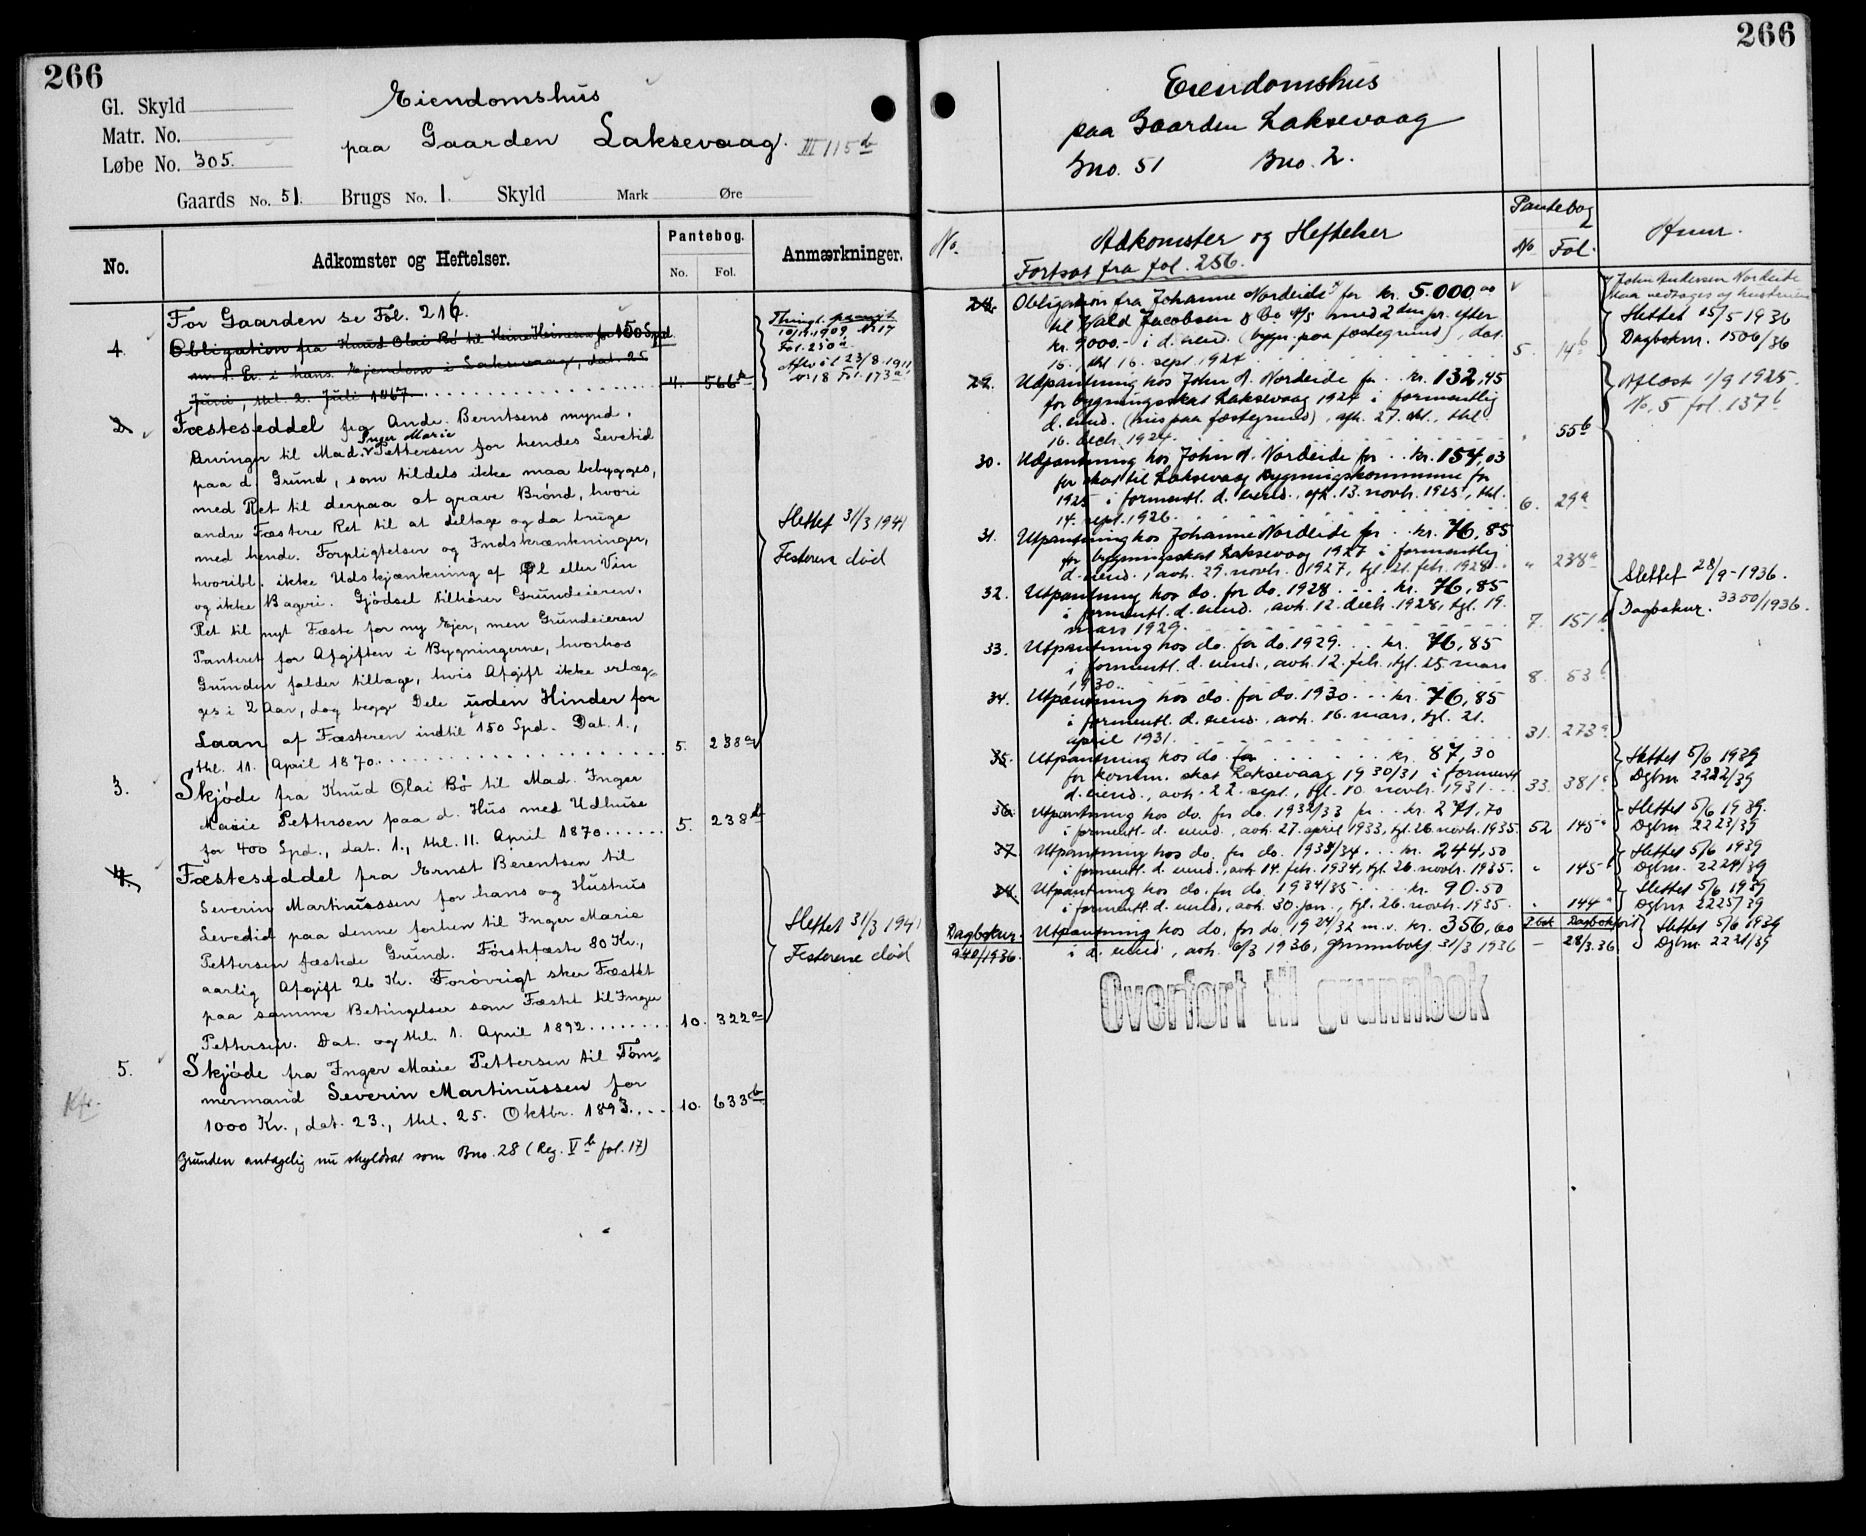 266
Gl. Skyld
Matr. No.
Løbe No. 305.
Eiendomshus
paa Gaarden Laksevaag. III 115 b
Gaards No. 51. Brugs No. 1. Skyld Mark Øre
No. Adkomster og Heftelser. Pantebog. No. Fol. Anmærkninger.
For Gaarden se Fol. 216.
1. Obligation fra Knud Olai Bø til Heine Heinesen for 150 Spd
m. 1. Pr. i hans Ejendom i Laksevaag, dat. 25
Juni, thl. 2. Juli 1867. 4. 566a
Thingl. paany
10/12 1909 No 17
Fol. 250a
Afløst 23/8 1911
No 18 Fol. 173a
2. Fæsteseddel fra Ande. Berntsens mynd.
Arvinger til Mad. Inger Marie Pettersen for hendes Levetid
paa d. Grund, som tildels ikke maa bebygges,
med Ret til derpaa at grave Brønd, hvori
andre Fæstere Ret til at deltage og da bruge
med hende. Forpligtelser og Indskrænkninger,
hvoribl. ikke Udskjænkning af Øl eller Vin
og ikke Bageri. Gjødsel tilhører Grundeieren.
Ret til nyt Fæste for ny Ejer, men Grundeieren
Panteret for Afgiften i Bygningerne, hvorhos
Grunden falder tilbage, hvis Afgift ikke erlæg-
ges i 2 Aar, dog begge Dele uden Hinder for
Laan af Fæsteren indtil 150 Spd. Dat. 1.,
thl. 11. April 1870. 5. 238a
Slettet 31/3 1941
Festeren død
3. Skjøde fra Knud Olai Bø til Mad. Inger
Marie Pettersen paa d. Hus med Udhuse
for 400 Spd., dat. 1., thl. 11. April 1870. 5. 238b
4. Fæsteseddel fra Ernst Berentsen til
Severin Martinussen for hans og Hustrus
Levetid paa denne forhen til Inger Marie
Pettersen fæstede Grund. Førstefæste 80 Kr.,
aarlig Afgift 26 Kr. Forøvrigt sker Fæstet
paa samme Betingelser som Fæstet til Inger
Pettersen. Dat. og thl. 1. April 1892. 10. 322a
Slettet 31/3 1941
Festerene død
5. Skjøde fra Inger Marie Pettersen til Tøm-
mermand Severin Martinussen for
1000 Kr., dat. 23., thl. 25. Oktbr. 1893. 10. 633b
Kfr.
Grunden antagelig nu skyldsat som Bno. 28 (Reg. Vb fol. 17)
266
Eiendomshus
paa Gaarden Laksevaag
Gno. 51 Bno. 2.
No. Adkomster og Heftelser Pantebog No Fol.
Fortsat fra fol. 256.
28. Obligation fra Johanne Nordeide for kr. 5.000,00
til Wald. Jacobsen & Co A/S med 2den pr. efter
kr. 9000.- i d. eiend. (bygn. paa fæstegrund), dat.
15., thl. 16. sept. 1924 5. 14b
John Andersen Nordeide
Slettet 15/5-1936
Dagboknr. 1506/36
29. Udpantning hos John A. Nordeide for kr. 132,45
for bygningsskat Laksevaag 1924 i formentlig
d. eiend. (hus paa fæstegrund), afh. 27. okt., thl.
16. decb. 1924. " 55b
Aflæst 1/9 1925.
No. 5 fol. 137b
30. Udpantning hos John A. Nordeide for kr. 154,03
for skat til Laksevaag Bygningskommune for
1925 i formentl. d. eiend., afh. 13. novb. 1925, thl.
14. sept. 1926. 6. 29a
31. Utpantning hos Johanne Nordeide for kr. 76,85
for bygningsskat Laksevaag 1927 i formentlig
d. eiend., avh. 29. novb. 1927, tgl. 21. feb. 1928. " 238a
32. Utpantning hos do. for do. 1928 kr. 76,85
i formentl. d. eiend., avh. 12. decb. 1928, tgl. 19.
mars 1929. 7. 151b
Slettet 28/9-1936.
Dagboknr. 3350/1936.
33. Utpantning hos do. for do. 1929 kr. 76,85
i formentl. d. eiend., avh. 12. feb., tgl. 25 mars
1930. 8. 83b
34. Utpantning hos do. for do. 1930 kr. 76,85
i formentl. d. eiend., avh. 16. mars, tgl. 21.
april 1931. 31. 273a
35. Utpantning hos do. for kr. 87,30
for komm. skat Laksevaag 1930/31 i formentl
d. eiend., avh. 22. sept., tgl. 10. novb. 1931. 33. 381a
Slettet 5/6 1939
Dgbnr 2222/39
36. Utpantning hos do. for do. 1932/33 for kr. 271,70
i formentl. d. eiend., avh. 27. april 1933, tgl. 26. novb. 1935. 52 145a
Slettet 5/6 1939.
Dgbnr 2223/39
37. Utpantning hos do. for do. 1933/34 kr. 244,50
i formentl. d. eiend., avh. 14. feb. 1934, tgl. 26. novb. 1935. " 145b
Slettet 5/6 1939
Dgbnr. 2224/39
38. Utpantning hos do. for do. 1934/35 kr. 90.50
i formentl. d. eiend., avh. 30. jan., tgl. 26. novb. 1935. " 144a
Slettet 5/6 1939
Dgbnr 2225/39
Dagboknr. 940/1936. Utpantning hos do. for do. 1924/32 m.v. kr. 356,60
i d. eiend., avh. 6/3 1936, grunnbokf. 31/3 1936 — 28/3.36
Slettet 5/6 1939
Dgbnr 2221/39
Overført til grunnbok